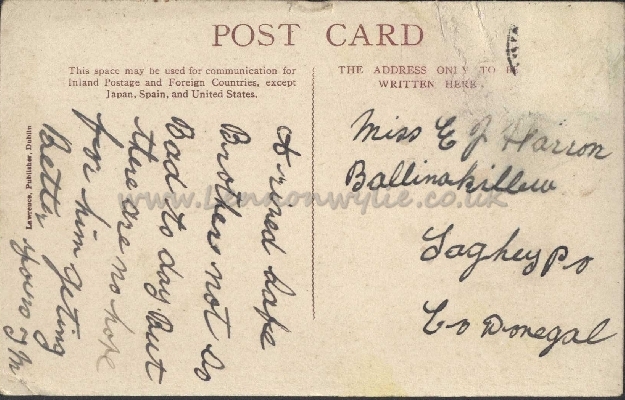 POST CARD
This space may be used for communication for
Inland Postage and Foreign Countries, except
Japan, Spain, and United States.
THE ADDRESS ONLY TO B
WRITTEN HERE.
Lawrence, Publisher, Dublin
Arrived safe
Brothers not so
Bad to day But
there are no hope
for him geting
Better yours J M
Miss E J Harron
Ballinakillew
Laghey Po
Co Donegal
www.lennonwylie.co.uk